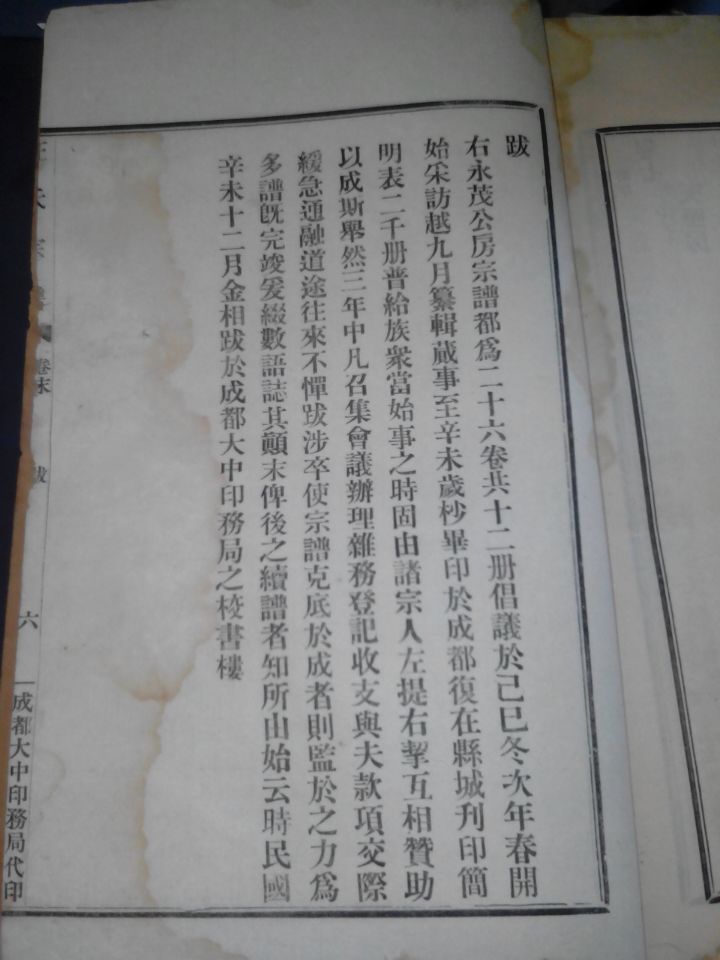 跋
右永茂公房宗譜都爲二十六卷共十二册倡議於己巳冬次年春開
始采訪越九月纂輯蕆事至辛未歲杪畢印於成都復在縣城刋印簡
明表二千册普給族衆當始事之時固由諸宗人左提右挈互相贊助
以成斯舉然三年中凡召集會議辦理雜務登記收支與夫款項交際
緩急通融道途往來不憚跋涉卒使宗譜克底於成者則監於之力爲
多譜旣完竣爰綴數語誌其顚末俾後之續譜者知所由始云時民國
辛未十二月金相跋於成都大中印務局之校書樓
卷末
跋
六
成都大中印務局代印